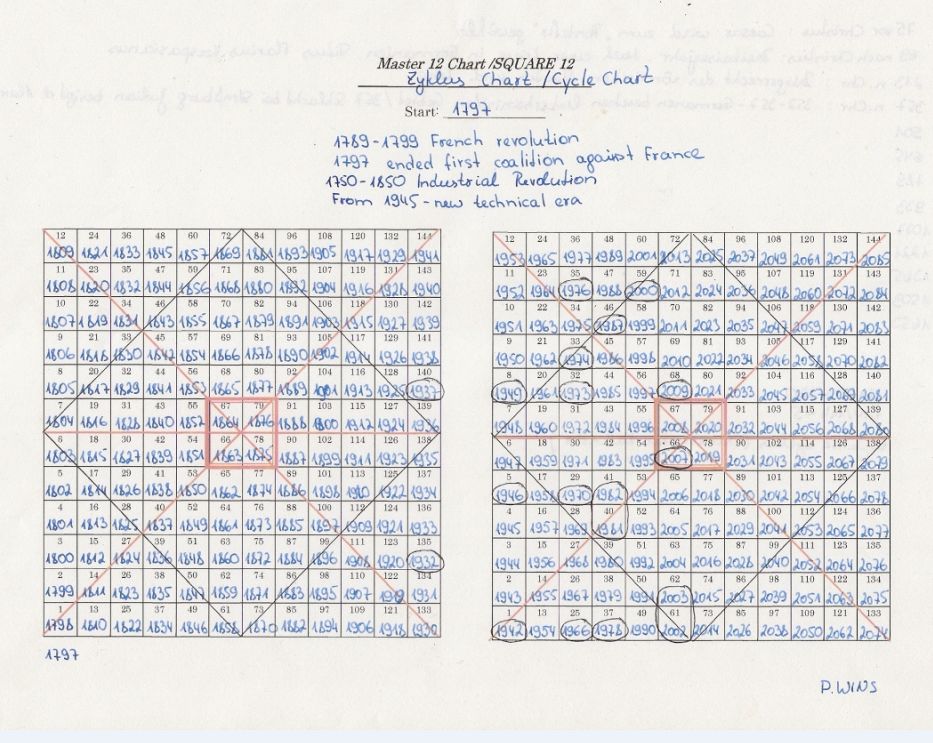 Master 12 Chart /SQUARE 12
Zyklus Chart / Cycle Chart
Start: 1797
1789-1799 French revolution
1797 ended first coalition against France
1750-1850 Industrial Revolution
From 1945 - new technical era
12 24 36 48 60 72 84 96 108 120 132 144
1809 1821 1833 1845 1857 1869 1881 1893 1905 1917 1929 1941
11 23 35 47 59 71 83 95 107 119 131 143
1808 1820 1832 1844 1856 1868 1880 1892 1904 1916 1928 1940
10 22 34 46 58 70 82 94 106 118 130 142
1807 1819 1831 1843 1855 1867 1879 1891 1903 1915 1927 1939
9 21 33 45 57 69 81 93 105 117 129 141
1806 1818 1830 1842 1854 1866 1878 1890 1902 1914 1926 1938
8 20 32 44 56 68 80 92 104 116 128 140
1805 1817 1829 1841 1853 1865 1877 1889 1901 1913 1925 1937
7 19 31 43 55 67 79 91 103 115 127 139
1804 1816 1828 1840 1852 1864 1876 1888 1900 1912 1924 1936
6 18 30 42 54 66 78 90 102 114 126 138
1803 1815 1827 1839 1851 1863 1875 1887 1899 1911 1923 1935
5 17 29 41 53 65 77 89 101 113 125 137
1802 1814 1826 1838 1850 1862 1874 1886 1898 1910 1922 1934
4 16 28 40 52 64 76 88 100 112 124 136
1801 1813 1825 1837 1849 1861 1873 1885 1897 1909 1921 1933
3 15 27 39 51 63 75 87 99 111 123 135
1800 1812 1824 1836 1848 1860 1872 1884 1896 1908 1920 1932
2 14 26 38 50 62 74 86 98 110 122 134
1799 1811 1823 1835 1847 1859 1871 1883 1895 1907 1919 1931
1 13 25 37 49 61 73 85 97 109 121 133
1798 1810 1822 1834 1846 1858 1870 1882 1894 1906 1918 1930
1797
12 24 36 48 60 72 84 96 108 120 132 144
1953 1965 1977 1989 2001 2013 2025 2037 2049 2061 2073 2085
11 23 35 47 59 71 83 95 107 119 131 143
1952 1964 1976 1988 2000 2012 2024 2036 2048 2060 2072 2084
10 22 34 46 58 70 82 94 106 118 130 142
1951 1963 1975 1987 1999 2011 2023 2035 2047 2059 2071 2083
9 21 33 45 57 69 81 93 105 117 129 141
1950 1962 1974 1986 1998 2010 2022 2034 2046 2058 2070 2082
8 20 32 44 56 68 80 92 104 116 128 140
1949 1961 1973 1985 1997 2009 2021 2033 2045 2057 2069 2081
7 19 31 43 55 67 79 91 103 115 127 139
1948 1960 1972 1984 1996 2008 2020 2032 2044 2056 2068 2080
6 18 30 42 54 66 78 90 102 114 126 138
1947 1959 1971 1983 1995 2007 2019 2031 2043 2055 2067 2079
5 17 29 41 53 65 77 89 101 113 125 137
1946 1958 1970 1982 1994 2006 2018 2030 2042 2054 2066 2078
4 16 28 40 52 64 76 88 100 112 124 136
1945 1957 1969 1981 1993 2005 2017 2029 2041 2053 2065 2077
3 15 27 39 51 63 75 87 99 111 123 135
1944 1956 1968 1980 1992 2004 2016 2028 2040 2052 2064 2076
2 14 26 38 50 62 74 86 98 110 122 134
1943 1955 1967 1979 1991 2003 2015 2027 2039 2051 2063 2075
1 13 25 37 49 61 73 85 97 109 121 133
1942 1954 1966 1978 1990 2002 2014 2026 2038 2050 2062 2074
P. WINS